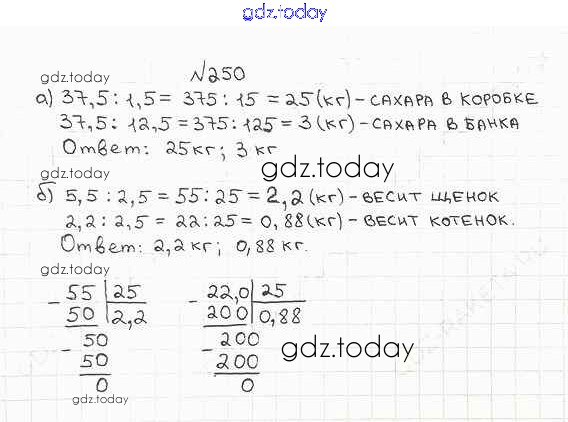 gdz.today
№250
gdz.today
а) 37,5 : 1,5 = 375 : 15 = 25 (кг) - САХАРА В КОРОБКЕ
37,5 : 12,5 = 375 : 125 = 3 (кг) - САХАРА В БАНКА
Ответ: 25 кг; 3 кг
gdz.today
б) 5,5 : 2,5 = 55 : 25 = 2,2 (кг) - ВЕСИТ ЩЕНОК
2,2 : 2,5 = 22 : 25 = 0,88 (кг) - ВЕСИТ КОТЕНОК.
Ответ: 2,2 кг; 0,88 кг.
gdz.today
- 55 | 25 - 22,0 | 25
50 | 2,2 200 | 0,88
- 50 - 200
50 200
gdz.today
0 0
gdz.today